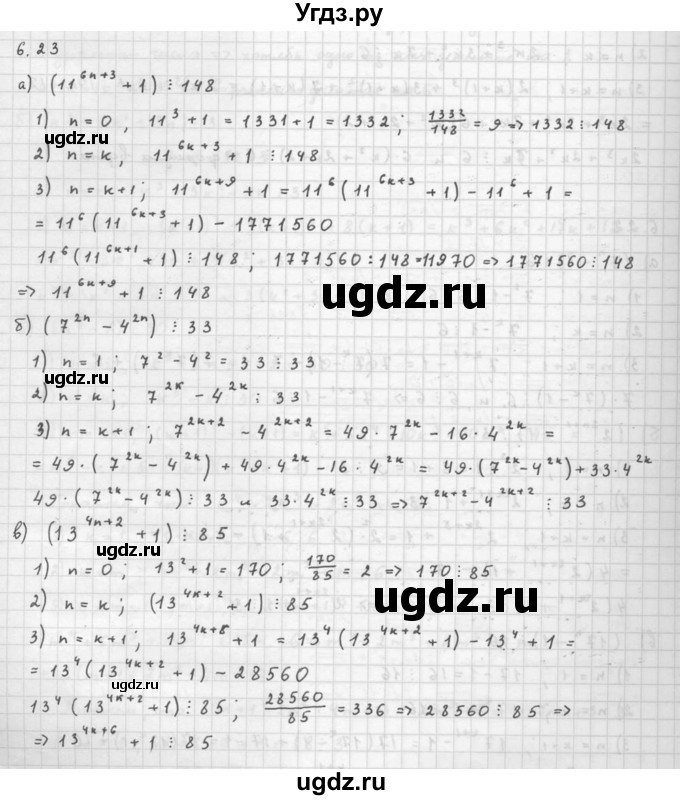 Угдз.ру
6.23
а) (11^(6n+3) + 1) ⋮ 148
1) n = 0, 11^3 + 1 = 1331 + 1 = 1332; 1332/148 = 9 => 1332 ⋮ 148
ugdz.ru
2) n = k, 11^(6k+3) + 1 ⋮ 148
3) n = k+1; 11^(6k+9) + 1 = 11^6 (11^(6k+3) + 1) - 11^6 + 1 =
= 11^6 (11^(6k+3) + 1) - 1771560
11^6 (11^(6k+1) + 1) ⋮ 148; 1771560 : 148 = 11970 => 1771560 ⋮ 148
=> 11^(6k+9) + 1 ⋮ 148
ugdz.ru
б) (7^(2n) - 4^(2n)) ⋮ 33
1) n = 1; 7^2 - 4^2 = 33 ⋮ 33
ugdz.ru
2) n = k; 7^(2k) - 4^(2k) ⋮ 33
3) n = k+1; 7^(2k+2) - 4^(2k+2) = 49 · 7^(2k) - 16 · 4^(2k) =
= 49 · (7^(2k) - 4^(2k)) + 49 · 4^(2k) - 16 · 4^(2k) = 49 · (7^(2k) - 4^(2k)) + 33 · 4^(2k)
49 · (7^(2k) - 4^(2k)) ⋮ 33 и 33 · 4^(2k) ⋮ 33 => 7^(2k+2) - 4^(2k+2) ⋮ 33
в) (13^(4n+2) + 1) ⋮ 85
ugdz.ru
1) n = 0; 13^2 + 1 = 170; 170/85 = 2 => 170 ⋮ 85
2) n = k; (13^(4k+2) + 1) ⋮ 85
ugdz.ru
3) n = k+1; 13^(4k+8) + 1 = 13^4 (13^(4k+2) + 1) - 13^4 + 1 =
= 13^4 (13^(4k+2) + 1) - 28560
ugdz.ru
13^4 (13^(4k+2) + 1) ⋮ 85; 28560/85 = 336 => 28560 ⋮ 85 =>
=> 13^(4k+6) + 1 ⋮ 85
ugdz.ru